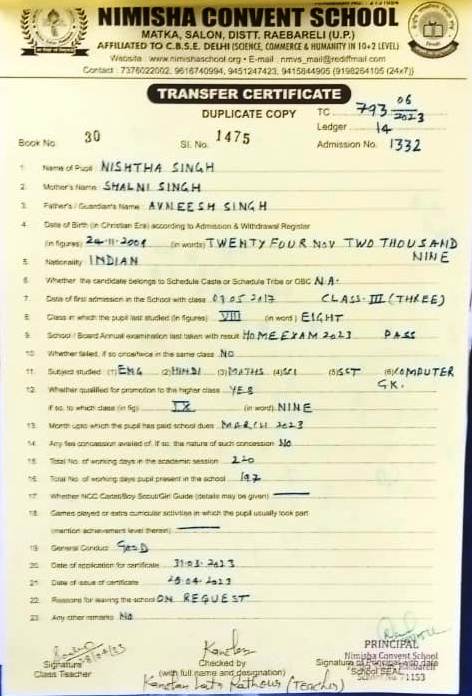 NIMISHA CONVENT SCHOOL
MATKA, SALON, DISTT. RAEBARELI (U.P.)
AFFILIATED TO C.B.S.E. DELHI (SCIENCE, COMMERCE & HUMANITY IN 10+2 LEVEL)
Website : www.nimishaschool.org • E-mail : nmvs_mail@rediffmail.com
Contact : 7376022002, 9616740994, 9451247423, 9415844905 (9198264105 (24x7))
TRANSFER CERTIFICATE
DUPLICATE COPY
TC 793 06/2023
Ledger 14
Book No. 30 Sl. No. 1475 Admission No. 1332
1. Name of Pupil NISHTHA SINGH
2. Mother's Name SHALNI SINGH
3. Father's / Guardian's Name AVNEESH SINGH
4. Date of Birth (in Christian Era) according to Admission & Withdrawal Register
(in figures) 24-11-2009 (in words) TWENTY FOUR NOV TWO THOUSAND NINE
5. Nationality INDIAN
6. Whether the candidate belongs to Schedule Caste or Schedule Tribe or OBC N.A.
7. Date of first admission in the School with class 03.05.2017 CLASS-III (THREE)
8. Class in which the pupil last studied (in figures) VIII (in word) EIGHT
9. School / Board Annual examination last taken with result HOME EXAM 2023 PASS
10. Whether failed, if so once/twice in the same class NO
11. Subject studied (1) ENG (2) HINDI (3) MATHS (4) SCI (5) SST (6) COMPUTER
GK.
12. Whether qualified for promotion to the higher class YES
if so, to which class (in fig) IX (in word) NINE
13. Month upto which the pupil has paid school dues MARCH 2023
14. Any fee concession availed of. If so, the nature of such concession No
15. Total No. of working days in the academic session 220
16. Total No. of working days pupil present in the school 197
17. Whether NCC Cadet/Boy Scout/Girl Guide (details may be given)
18. Games played or extra curricular activities in which the pupil usually took part
(mention achievement level therein)
19. General Conduct GOOD
20. Date of application for certificate 31-03-2023
21. Date of issue of certificate 28-04-2023
22. Reasons for leaving the school ON REQUEST
23. Any other remarks No
PRINCIPAL
Nimisha Convent School
Signature Checked by Signature of Principal with date
Class Teacher (with full name and designation) School SEAL
1153
Kanchan Lata Rathour (Teacher)